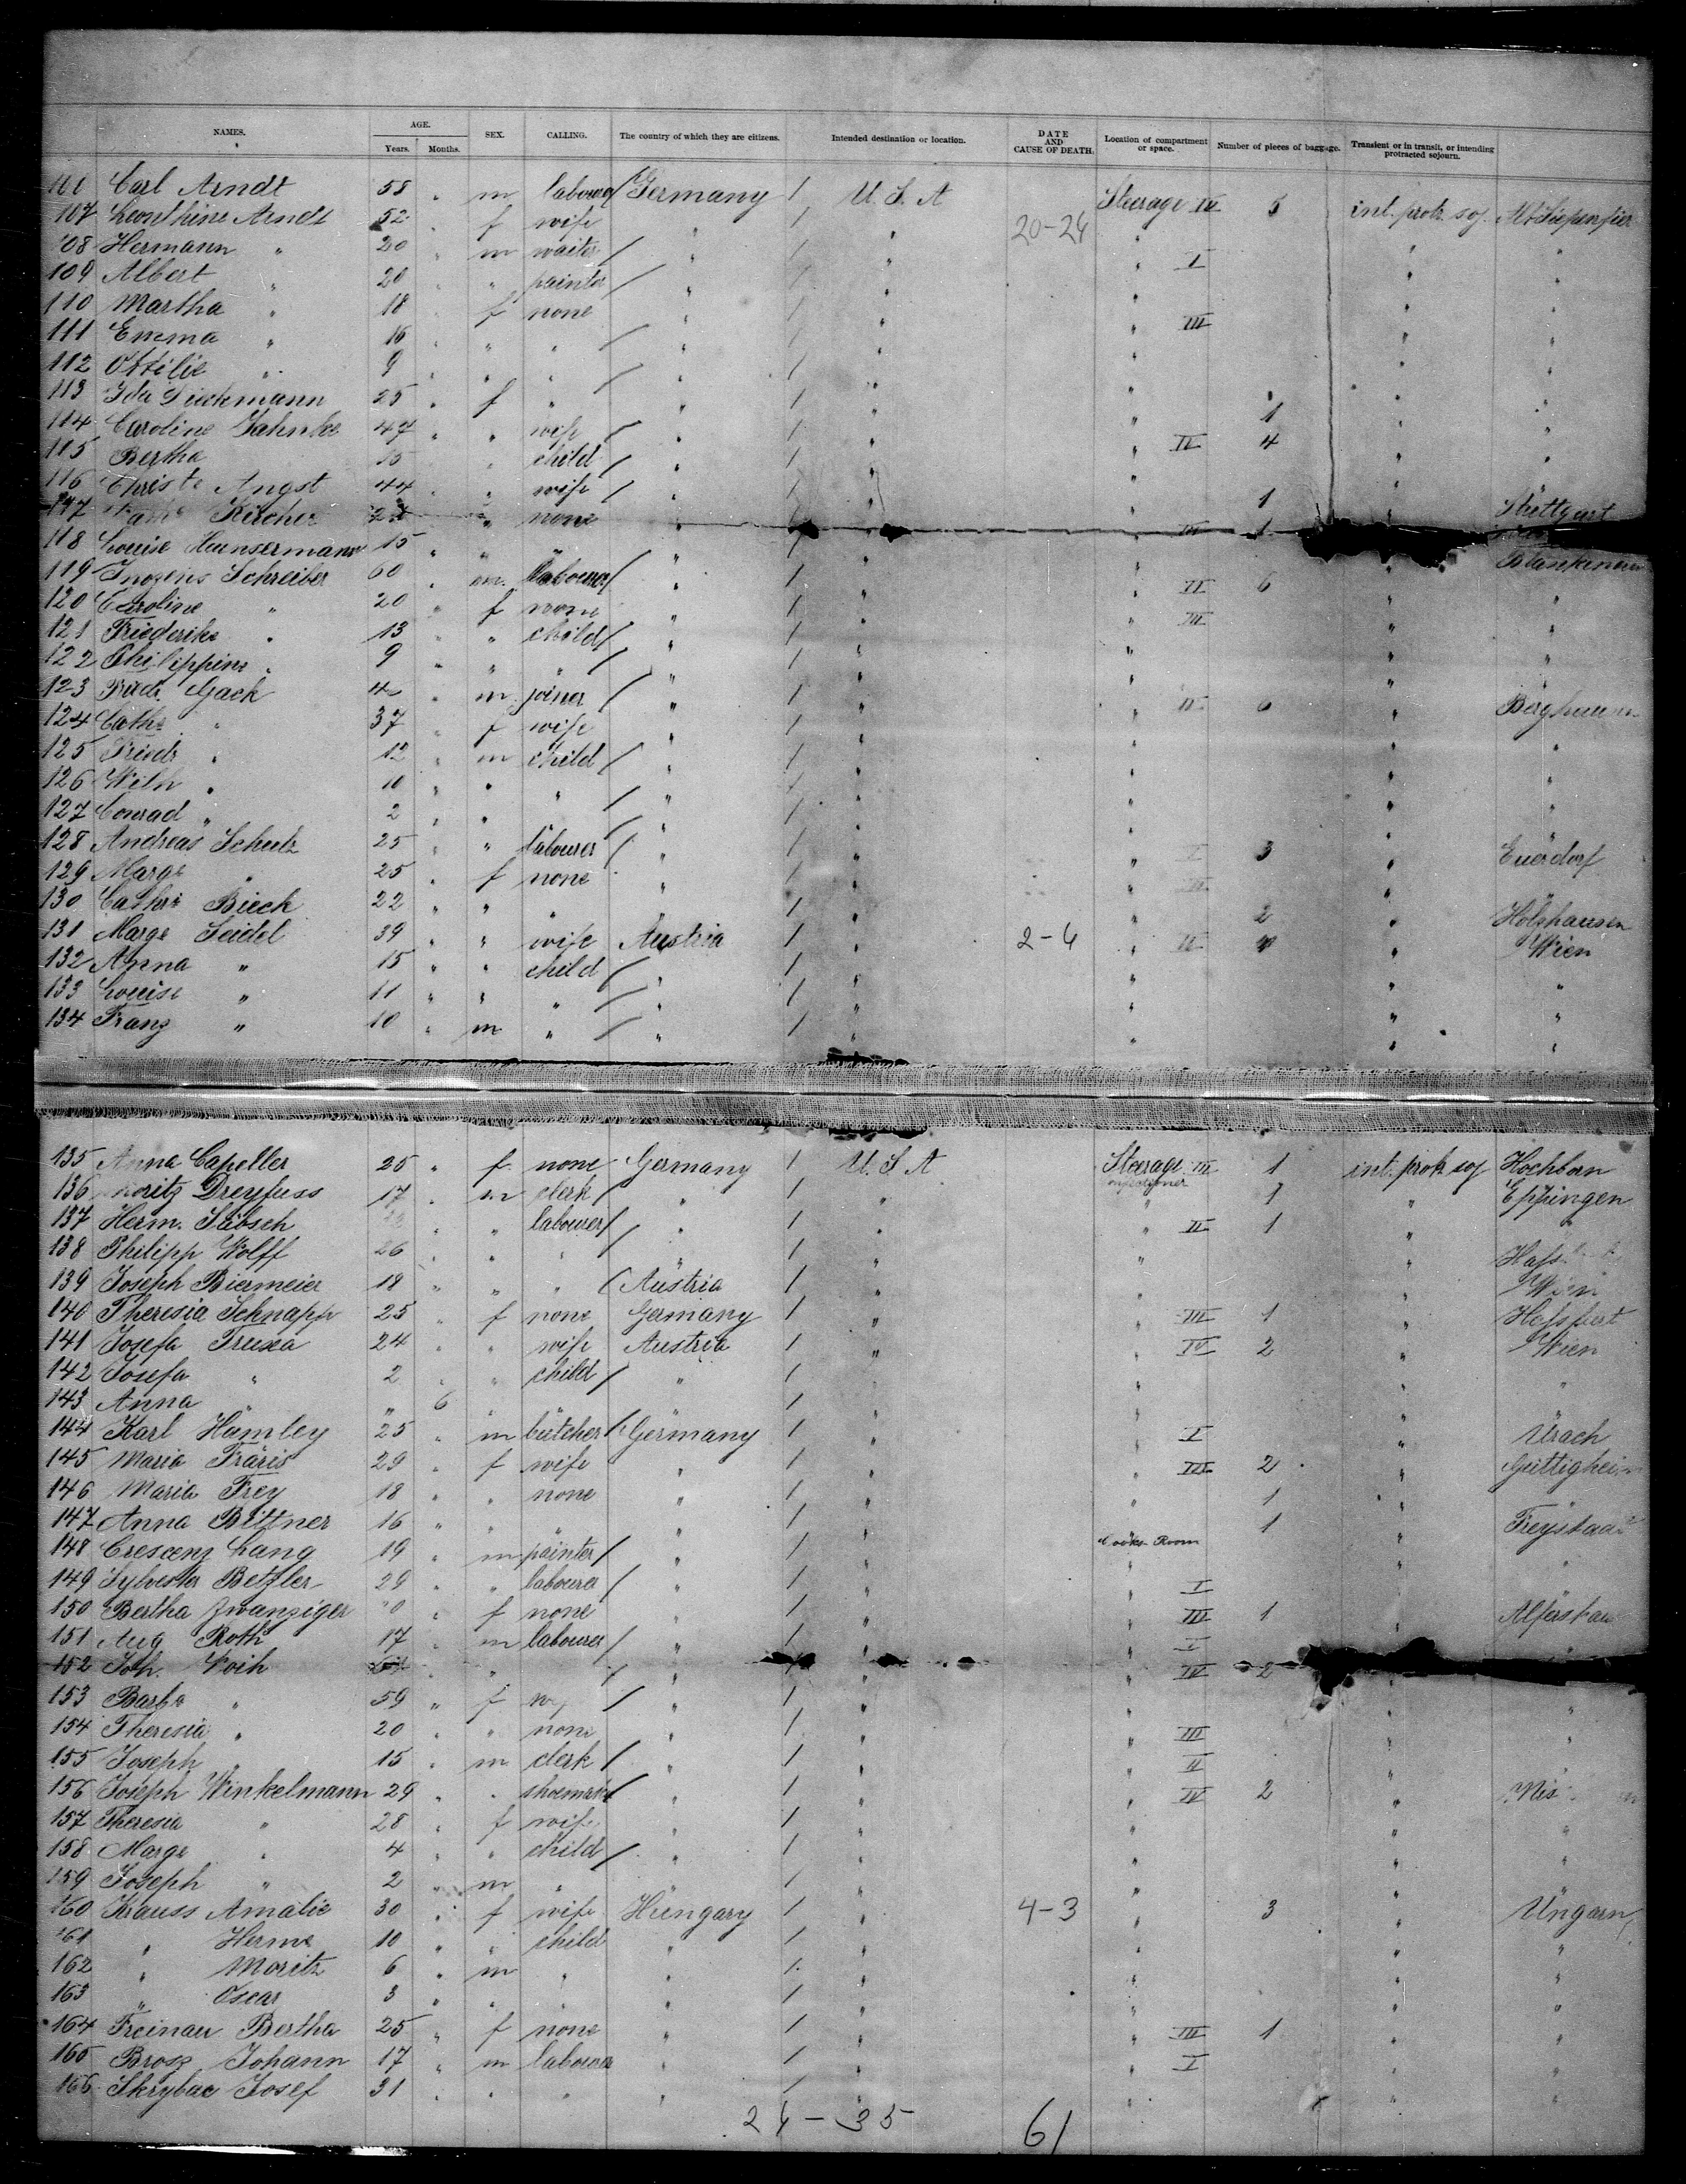 NAMES. AGE. Years. Months. SEX. CALLING. The country of which they are citizens. Intended destination or location. DATE AND CAUSE OF DEATH. Location of compartment or space. Number of pieces of baggage. Transient or in transit, or intending protracted sojourn.
Carl Arndt 58 " m labourer / Germany / U. S. A Steerage IV 5 int. protr. soj.
107 Leonthine Arndt 52 " f wife " / " 20-24 "
108 Hermann " 20 " m waiter / " / " " I " "
109 Albert " 20 " " painter / " / " " " "
110 Martha " 18 " f none " / " " III " "
111 Emma " 16 " " " / " / " " " "
112 Ottilie " 9 " " " / " / " " " "
113 Ida Dieckmann 25 " f " " / " " 1 "
114 Caroline Jahnke 47 " " wife / " / " " IV 4 " "
115 Bertha 15 " child / " / " " "
116 Christe Angst 44 " " wife / " / " " 1 " Stuttgart
117 Kircher " none " " III 1
118 Louise Hunsermann 15 " " " / " " Blankenau
119 Schreiber 60 " m labourer / " / " " IV 6 " "
120 Caroline " 20 " f none " / " " III " "
121 Friederike " 13 " " child / " / " " " "
122 Philippine " 9 " " " / " / " " " "
123 Friedr. Gack " m joiner / " / " " IV 6 " Berghausen
124 Cathe " 37 " f wife " / " " " "
125 Friedr " 12 " m child / " / " " " "
126 Wilh " 10 " " " / " / " " " "
127 Conrad " 2 " " " / " / " " " "
128 Andreas Schulz 25 " " labourer / " / " " I 3 " Euerdorf
129 Marge " 25 " f none " / " " III "
130 Cathe Bieck 22 " " " " / " " 2 " Holzhausen
131 Marge Seidel 39 " " wife Austria / " 2-4 " IV " Wien
132 Anna " 15 " " child / " / " " " "
133 Louise " 11 " " " / " / " " " "
134 Franz " 10 " m " / " / " " " "
135 Anna Capeller 25 " f none Germany / U. S. A Steerage III 1 int. protr. soj Hochborn
136 Moritz Dreyfuss 17 " m clerk / " / " " 1 " Eppingen
137 Herm. Säbsch " " labourer / " / " " II 1 " "
138 Philipp Wolff 26 " " " " / " " "
139 Joseph Biermeier 18 " " " / Austria / " " " Wien
140 Theresia Schnapp 25 " f none Germany / " " III 1 " Hassfurt
141 Josefa Truxa 24 " " wife Austria / " " IV 2 " Wien
142 Josefa " 2 " " child / " / " " " "
143 Anna " " 6 " " " / " " "
144 Karl Hämley 25 " m butcher / Germany / " " I " Urach
145 Maria Fräris 29 " f wife " / " " III 2 " Güttigheim
146 Maria Frey 18 " " none " / " " 1 "
147 Anna Bittner 16 " " " " / " 1 " Freystaat
148 Crescenz Lang 19 " m painter / " / " Cooks Room " "
149 Sylvester Betzler 29 " " labourer / " / " " I "
150 Bertha Zwanziger " f none " / " " III 1 "
151 Aug Roth 17 " m labourer / " / " " I "
152 Joh. Voih " " / " " IV 2
153 Barba " 59 " f / " / " " "
154 Theresia " 20 " " none " / " " III " "
155 Joseph " 15 " m clerk / " / " " II "
156 Joseph Winkelmann 29 " " shoemaker / " / " " IV 2 "
157 Theresia " 28 " f wife " / " " " "
158 Marge " 4 " " child / " / " " " "
159 Joseph " 2 " m " " / " " " "
160 Krauss Amalie 30 " f wife Hungary / " 4-3 " 3 " Ungarn
161 " Herme 10 " " child " / " " " "
162 " Moritz 6 " m " " / " " " "
163 " Oscar 3 " " " " / " " " "
164 Freinau Bertha 25 " f none " / " " III 1 " "
165 Brosz Johann 17 " m labourer " / " " I " "
166 Skrybac Josef 31 " " " " / " " " "
24-35 61